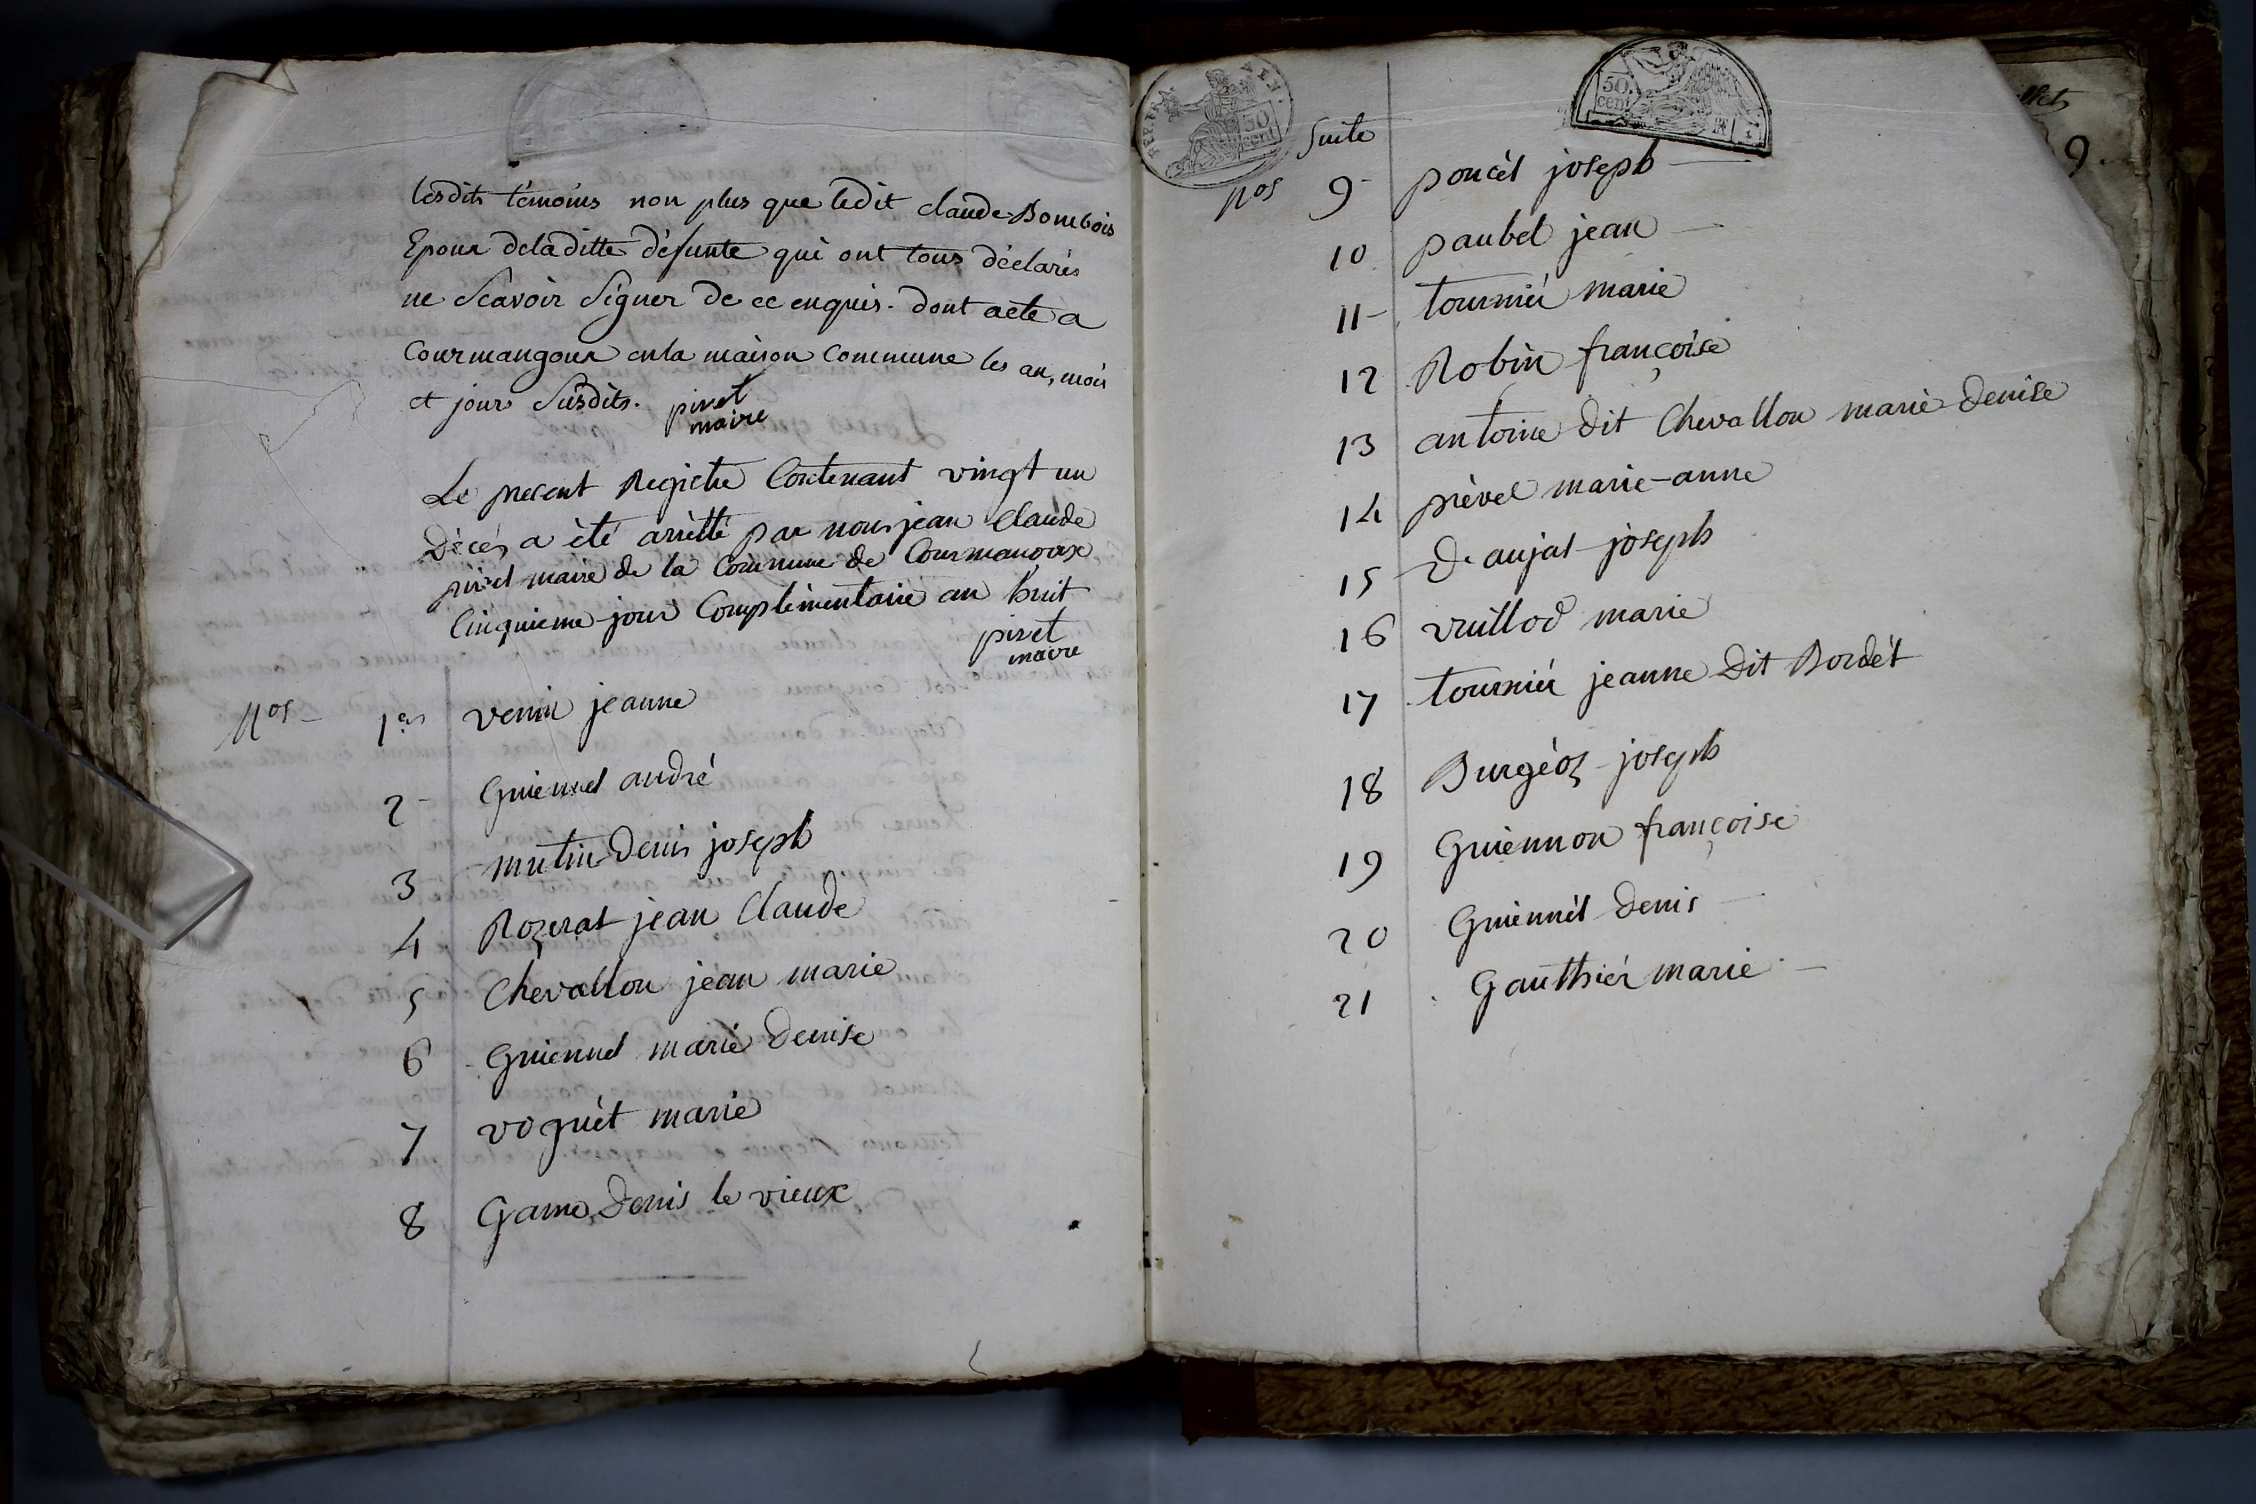 lesdits témoins non plus que ledit claude Bombois
Epoux deladitte défunte qui ont tous déclarés
ne Scavoir Signer de ce enquis. dont acte a
Courmangoux en la maison Commune les an, mois
et jour Susdits. pivet
maire
Le present Registre Contenant vingt un
Décés a été arrêtté par nous jean Claude
pivet maire de la Commune de Courmangoux
Cinquieme jour Complémentaire an huit
pivet
maire
Nos 1er venin jeanne
2 Guiennet andré
3 mutin denis joseph
4 Rozerat jean Claude
5 Chevallon jean marie
6 Guiennet marie denise
7 voguét marie
8 Game denis le vieux
REP. FRA.
50
cent
50.
cent
Suite
Nos 9 poncét joseph
10 paubel jean
11 tourniér marie
12 Robin françoise
13 antoine dit Chevallon marie denise
14 piével marie-anne
15 Daujat joseph
16 vuillod marie
17 tourniér jeanne Dit Bordét
18 Burgéoz joseph
19 Guiennon françoise
20 Guiennét denis
21 Gauthiér marie
9